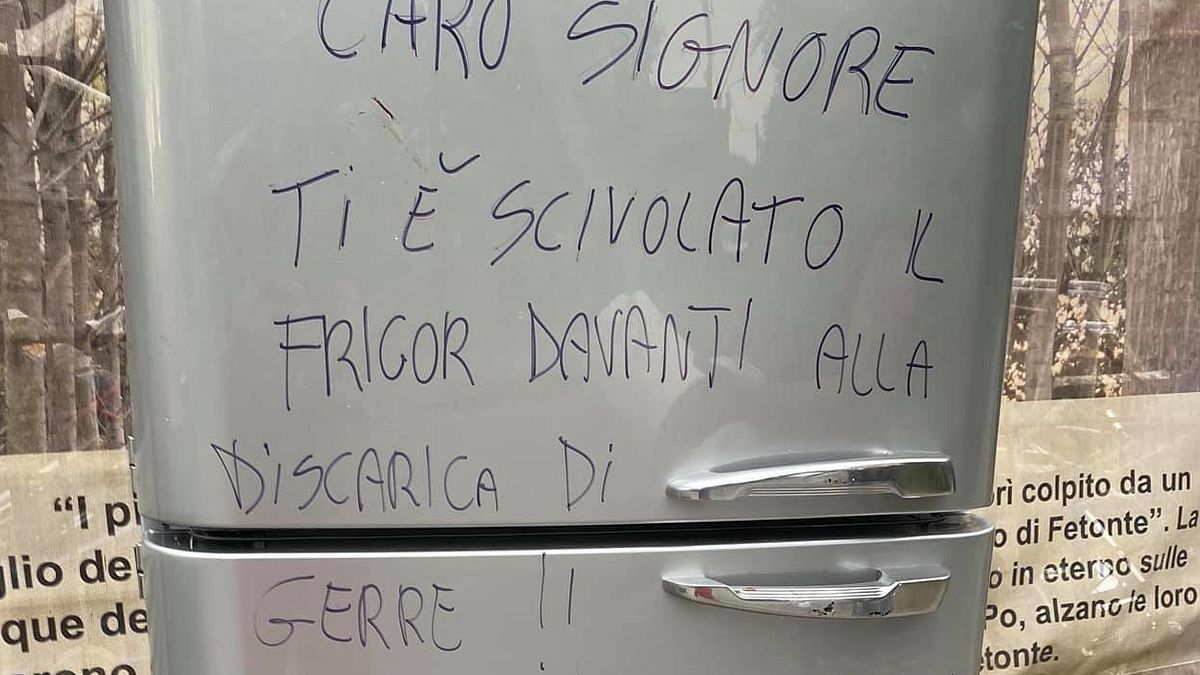 CARO SIGNORE
TI È SCIVOLATO IL
FRIGOR DAVANTI ALLA
DISCARICA DI
GERRE !!
“I pi
glio de
que de
rì colpito da un
o di Fetonte”. La
o in eterno sulle
Po, alzano le loro
etonte.